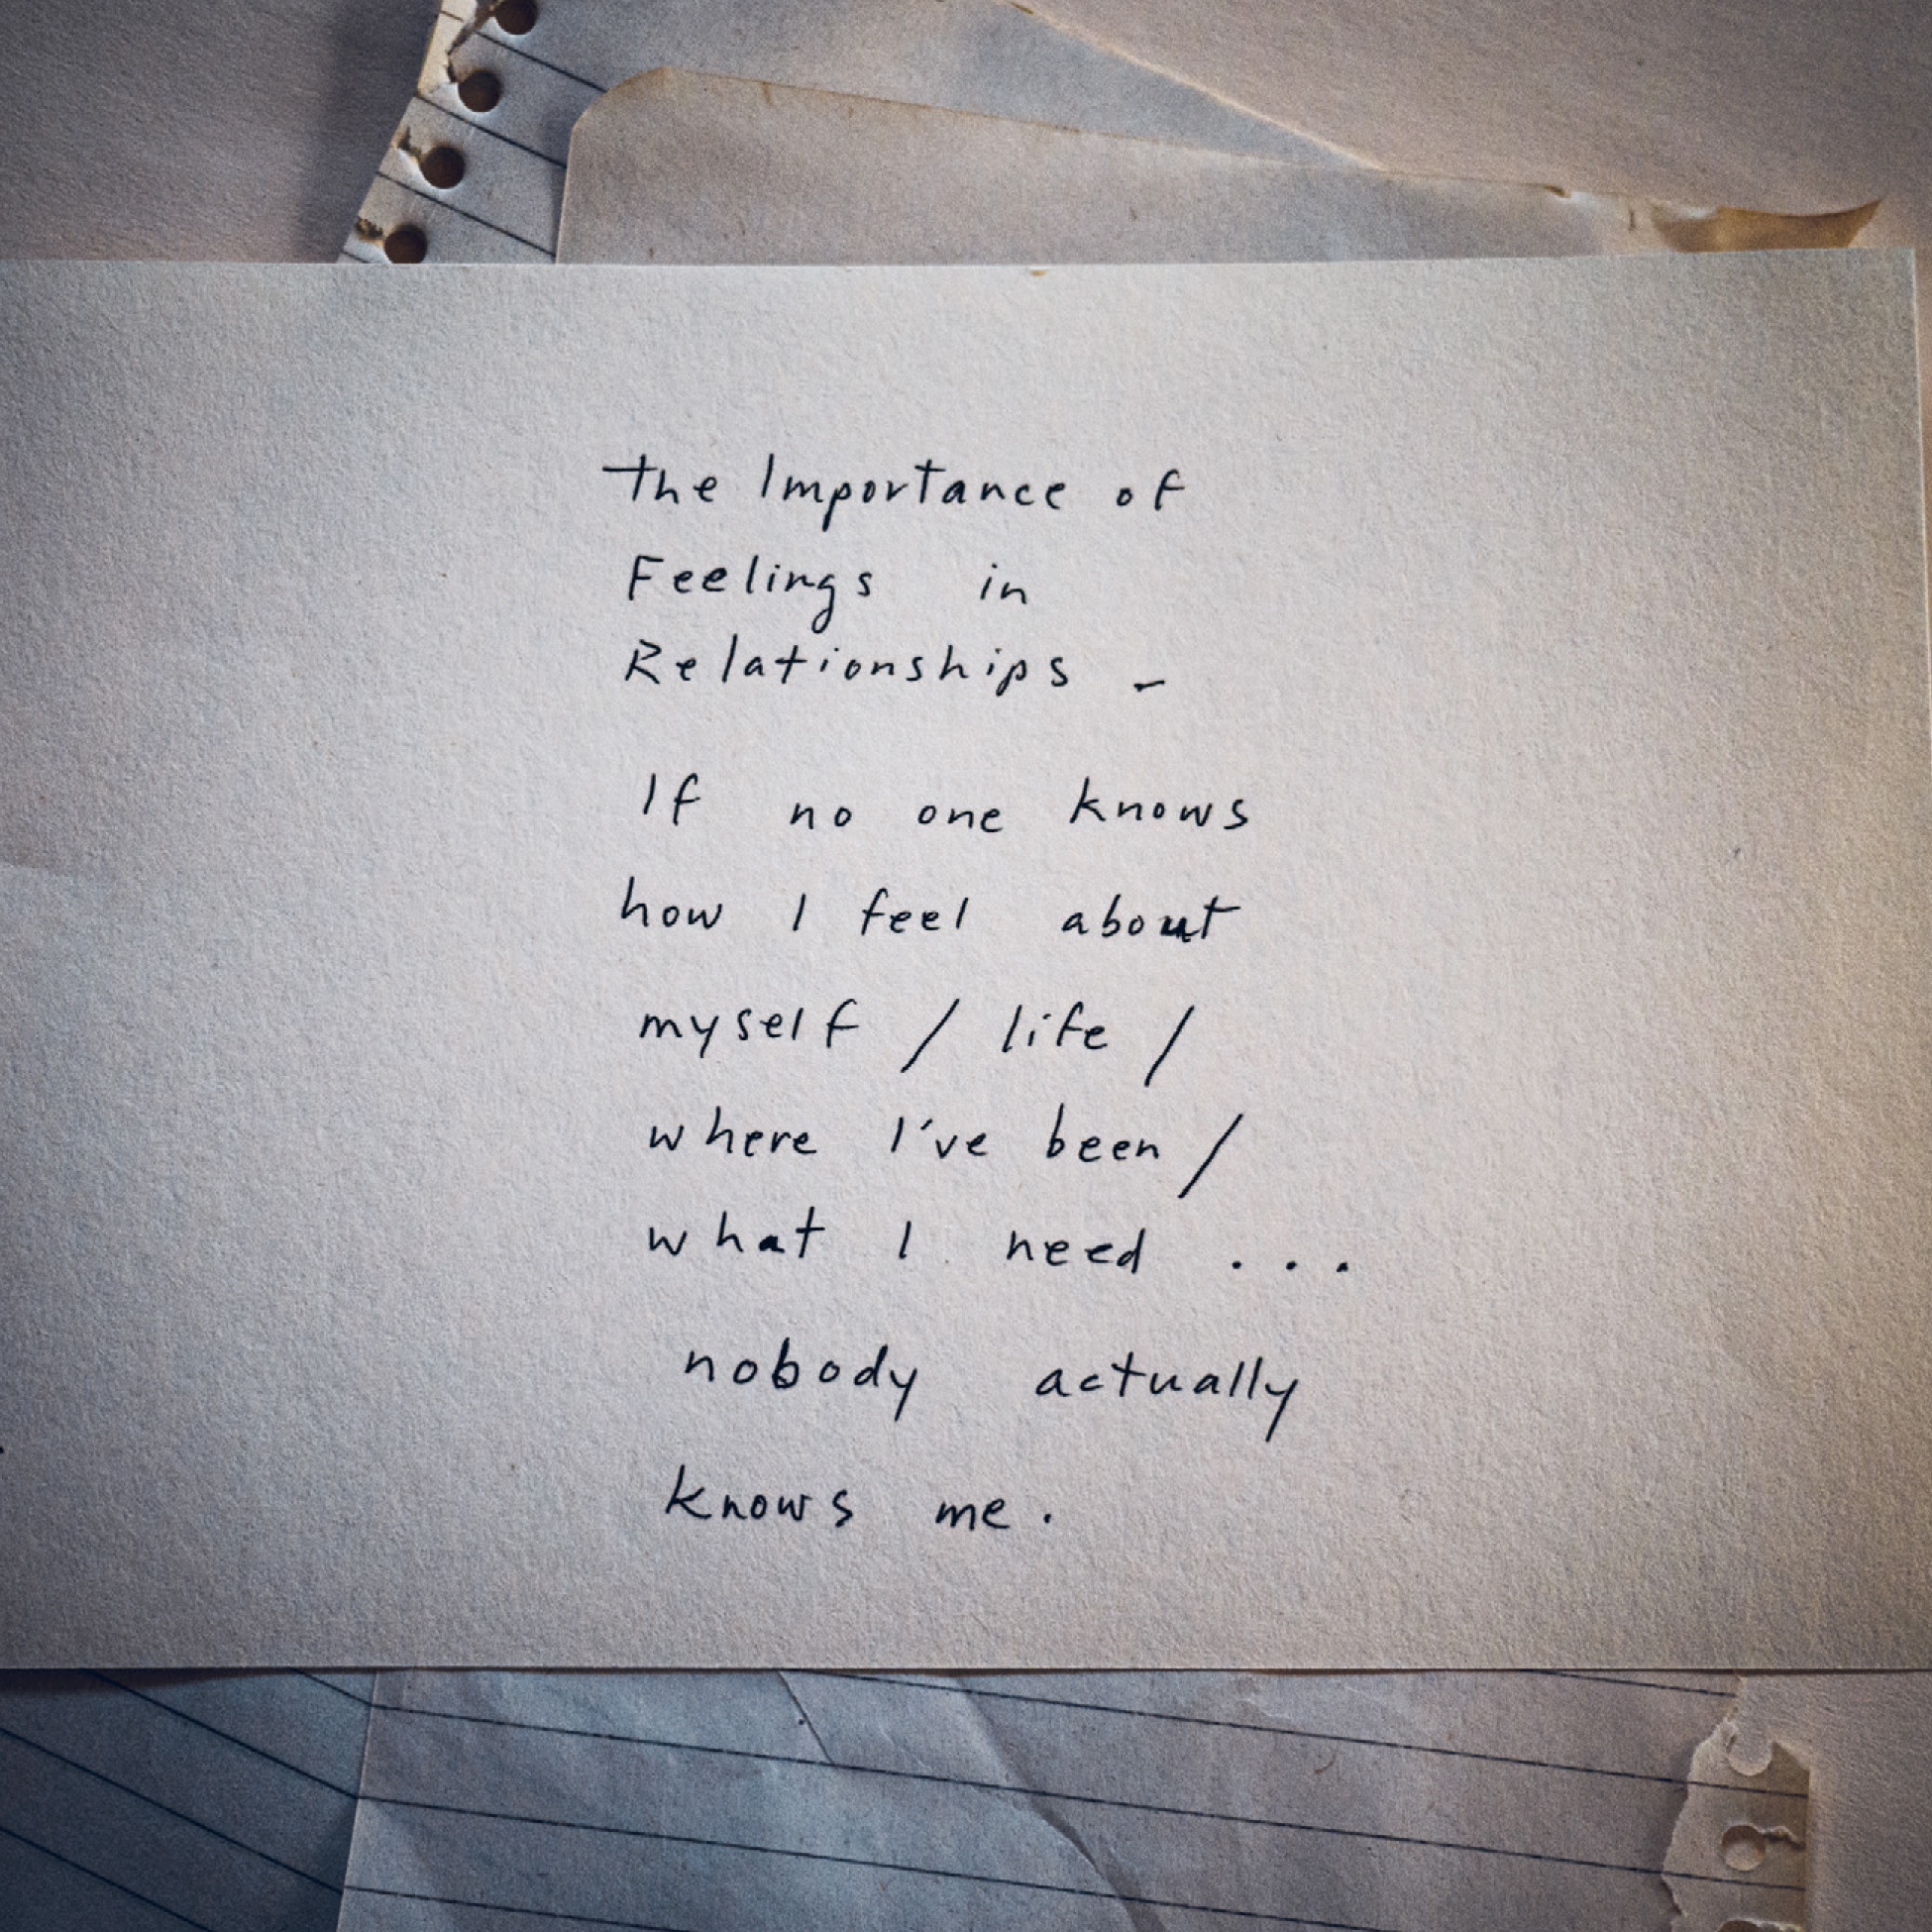 The Importance of
Feelings in
Relationships -
If no one knows
how I feel about
myself / life /
where I've been /
what I need ...
nobody actually
knows me.